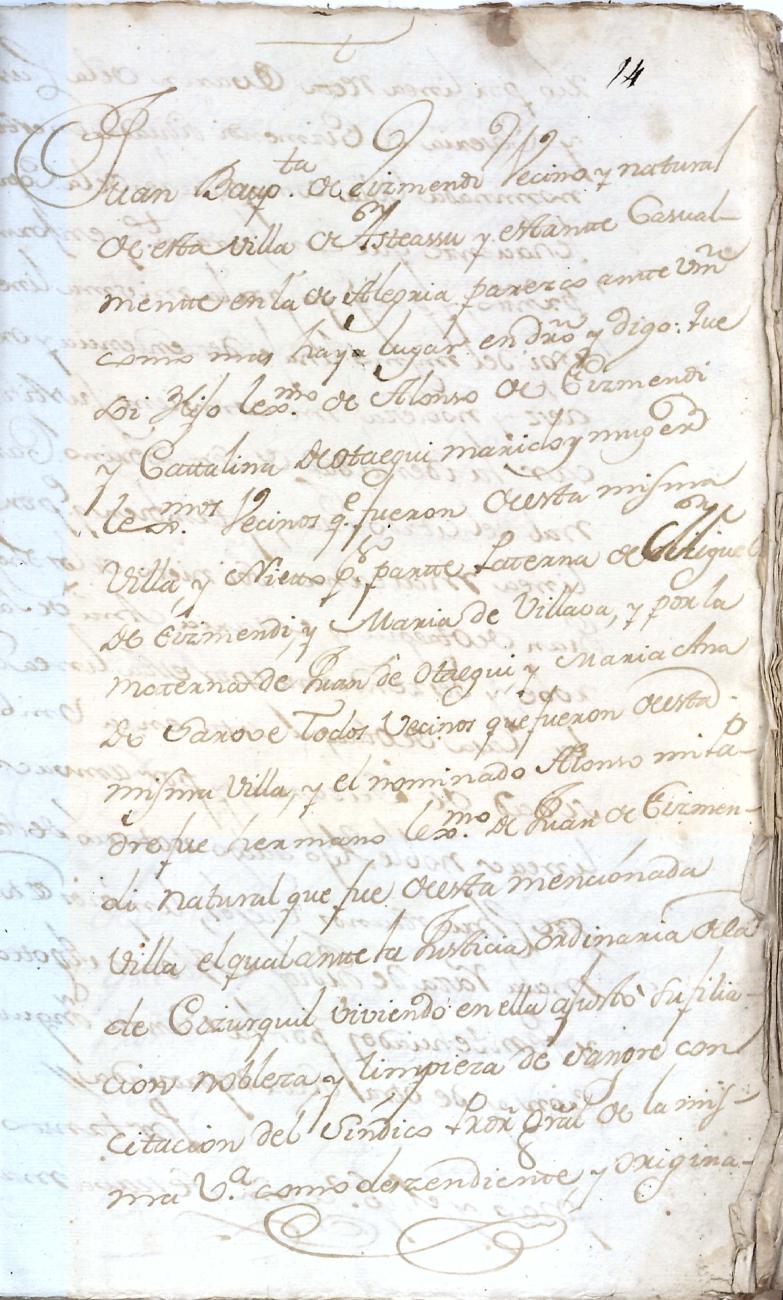 14
Juan Baup.ta de Eizmendi Vecino y natural
de esta villa de Asteassu y estante Casual-
mentte en la de Alegria parezco antte Vm.
como mas haya lugar en dro y digo: que
soi Hijo lexmo de Alonso de Eizmendi
y Cattalina de Otaegui marido y muger
lexmos Vecinos q.e fueron de esta misma
Villa, y Nietto pr partte Paterna de Miguel
de Eizmendi, y Maria de Villava, y por la
moterna de Juan de Otaegui, y Maria Ana
de Sarove Todos Vecinos que fueron de esta
misma Villa, y el nominado Alonso mi Pa-
dre fue hermano lexmo de Juan de Eizmen-
di natural que fue de esta mencionada
Villa el qual antte la Justicia Ordinaria de la
de Cizurquil viviendo en ella ajusto su filia-
cion nobleza y limpieza de sangre con
citacion del Sindico Pror Gral de la mis-
ma V.a como deszendiente, y origina-